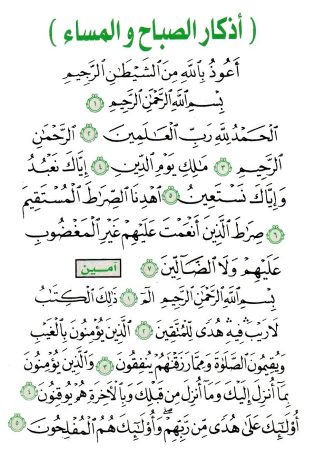 ( أذكار الصباح و المساء )
أَعُوذُ بِاللَّهِ مِنَ الشَّيْطَانِ الرَّجِيمِ
بِسْمِ اللَّهِ الرَّحْمَٰنِ الرَّحِيمِ ١
الْحَمْدُ لِلَّهِ رَبِّ الْعَالَمِينَ ٢ الرَّحْمَٰنِ
الرَّحِيمِ ٣ مَالِكِ يَوْمِ الدِّينِ ٤ إِيَّاكَ نَعْبُدُ
وَإِيَّاكَ نَسْتَعِينُ ٥ اهْدِنَا الصِّرَاطَ الْمُسْتَقِيمَ
٦ صِرَاطَ الَّذِينَ أَنْعَمْتَ عَلَيْهِمْ غَيْرِ الْمَغْضُوبِ
عَلَيْهِمْ وَلَا الضَّالِّينَ ٧ آمين
بِسْمِ اللَّهِ الرَّحْمَٰنِ الرَّحِيمِ الٓمٓ ١ ذَٰلِكَ الْكِتَابُ
لَا رَيْبَ ۛ فِيهِ ۛ هُدًى لِّلْمُتَّقِينَ ٢ الَّذِينَ يُؤْمِنُونَ بِالْغَيْبِ
وَيُقِيمُونَ الصَّلَوٰةَ وَمِمَّا رَزَقْنَٰهُمْ يُنفِقُونَ ٣ وَالَّذِينَ يُؤْمِنُونَ
بِمَا أُنزِلَ إِلَيْكَ وَمَا أُنزِلَ مِن قَبْلِكَ وَبِالْآخِرَةِ هُمْ يُوقِنُونَ ٤
أُولَٰئِكَ عَلَىٰ هُدًى مِّن رَّبِّهِمْ ۖ وَأُولَٰئِكَ هُمُ الْمُفْلِحُونَ ٥